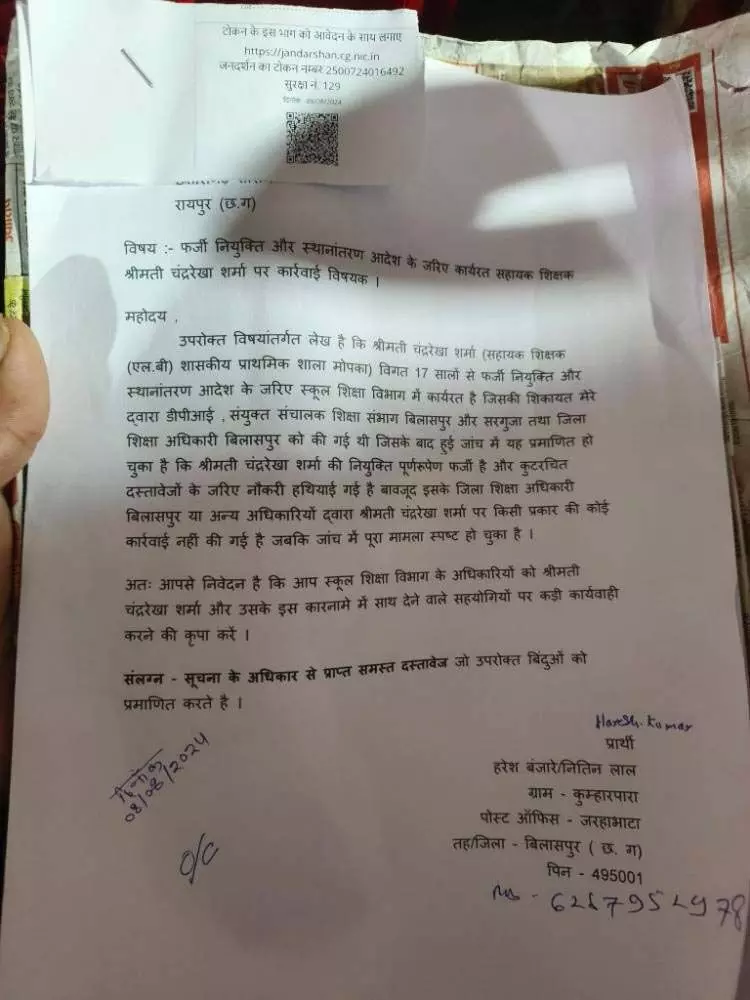 टोकन के इस भाग को आवेदन के साथ लगाए
https://jandarshan.cg.nic.in
जनदर्शन का टोकन नम्बर 2500724016492
सुरक्षा नं. 129
रायपुर (छ.ग)
विषय :- फर्जी नियुक्ति और स्थानांतरण आदेश के जरिए कार्यरत सहायक शिक्षक
श्रीमती चंद्ररेखा शर्मा पर कार्रवाई विषयक ।
महोदय ,
उपरोक्त विषयांतर्गत लेख है कि श्रीमती चंद्ररेखा शर्मा (सहायक शिक्षक
(एल.बी) शासकीय प्राथमिक शाला मोपका) विगत 17 सालों से फर्जी नियुक्ति और
स्थानांतरण आदेश के जरिए स्कूल शिक्षा विभाग में कार्यरत है जिसकी शिकायत मेरे
द्वारा डीपीआई , संयुक्त संचालक शिक्षा संभाग बिलासपुर और सरगुजा तथा जिला
शिक्षा अधिकारी बिलासपुर को की गई थी जिसके बाद हुई जांच में यह प्रमाणित हो
चुका है कि श्रीमती चंद्ररेखा शर्मा की नियुक्ति पूर्णरुपेण फर्जी है और कुटरचित
दस्तावेजों के जरिए नौकरी हथियाई गई है बावजूद इसके जिला शिक्षा अधिकारी
बिलासपुर या अन्य अधिकारियों द्वारा श्रीमती चंद्ररेखा शर्मा पर किसी प्रकार की कोई
कार्रवाई नहीं की गई है जबकि जांच में पूरा मामला स्पष्ट हो चुका है ।
अतः आपसे निवेदन है कि आप स्कूल शिक्षा विभाग के अधिकारियों को श्रीमती
चंद्ररेखा शर्मा और उसके इस कारनामे में साथ देने वाले सहयोगियों पर कड़ी कार्यवाही
करने की कृपा करें ।
संलग्न - सूचना के अधिकार से प्राप्त समस्त दस्तावेज जो उपरोक्त बिंदुओं को
प्रमाणित करते है ।
Haresh. Kumar
प्रार्थी
हरेश बंजारे/नितिन लाल
ग्राम - कुम्हारपारा
पोस्ट ऑफिस - जरहाभाटा
तह/जिला - बिलासपुर ( छ. ग)
पिन - 495001
दिनाँक
08/08/2024
o/c